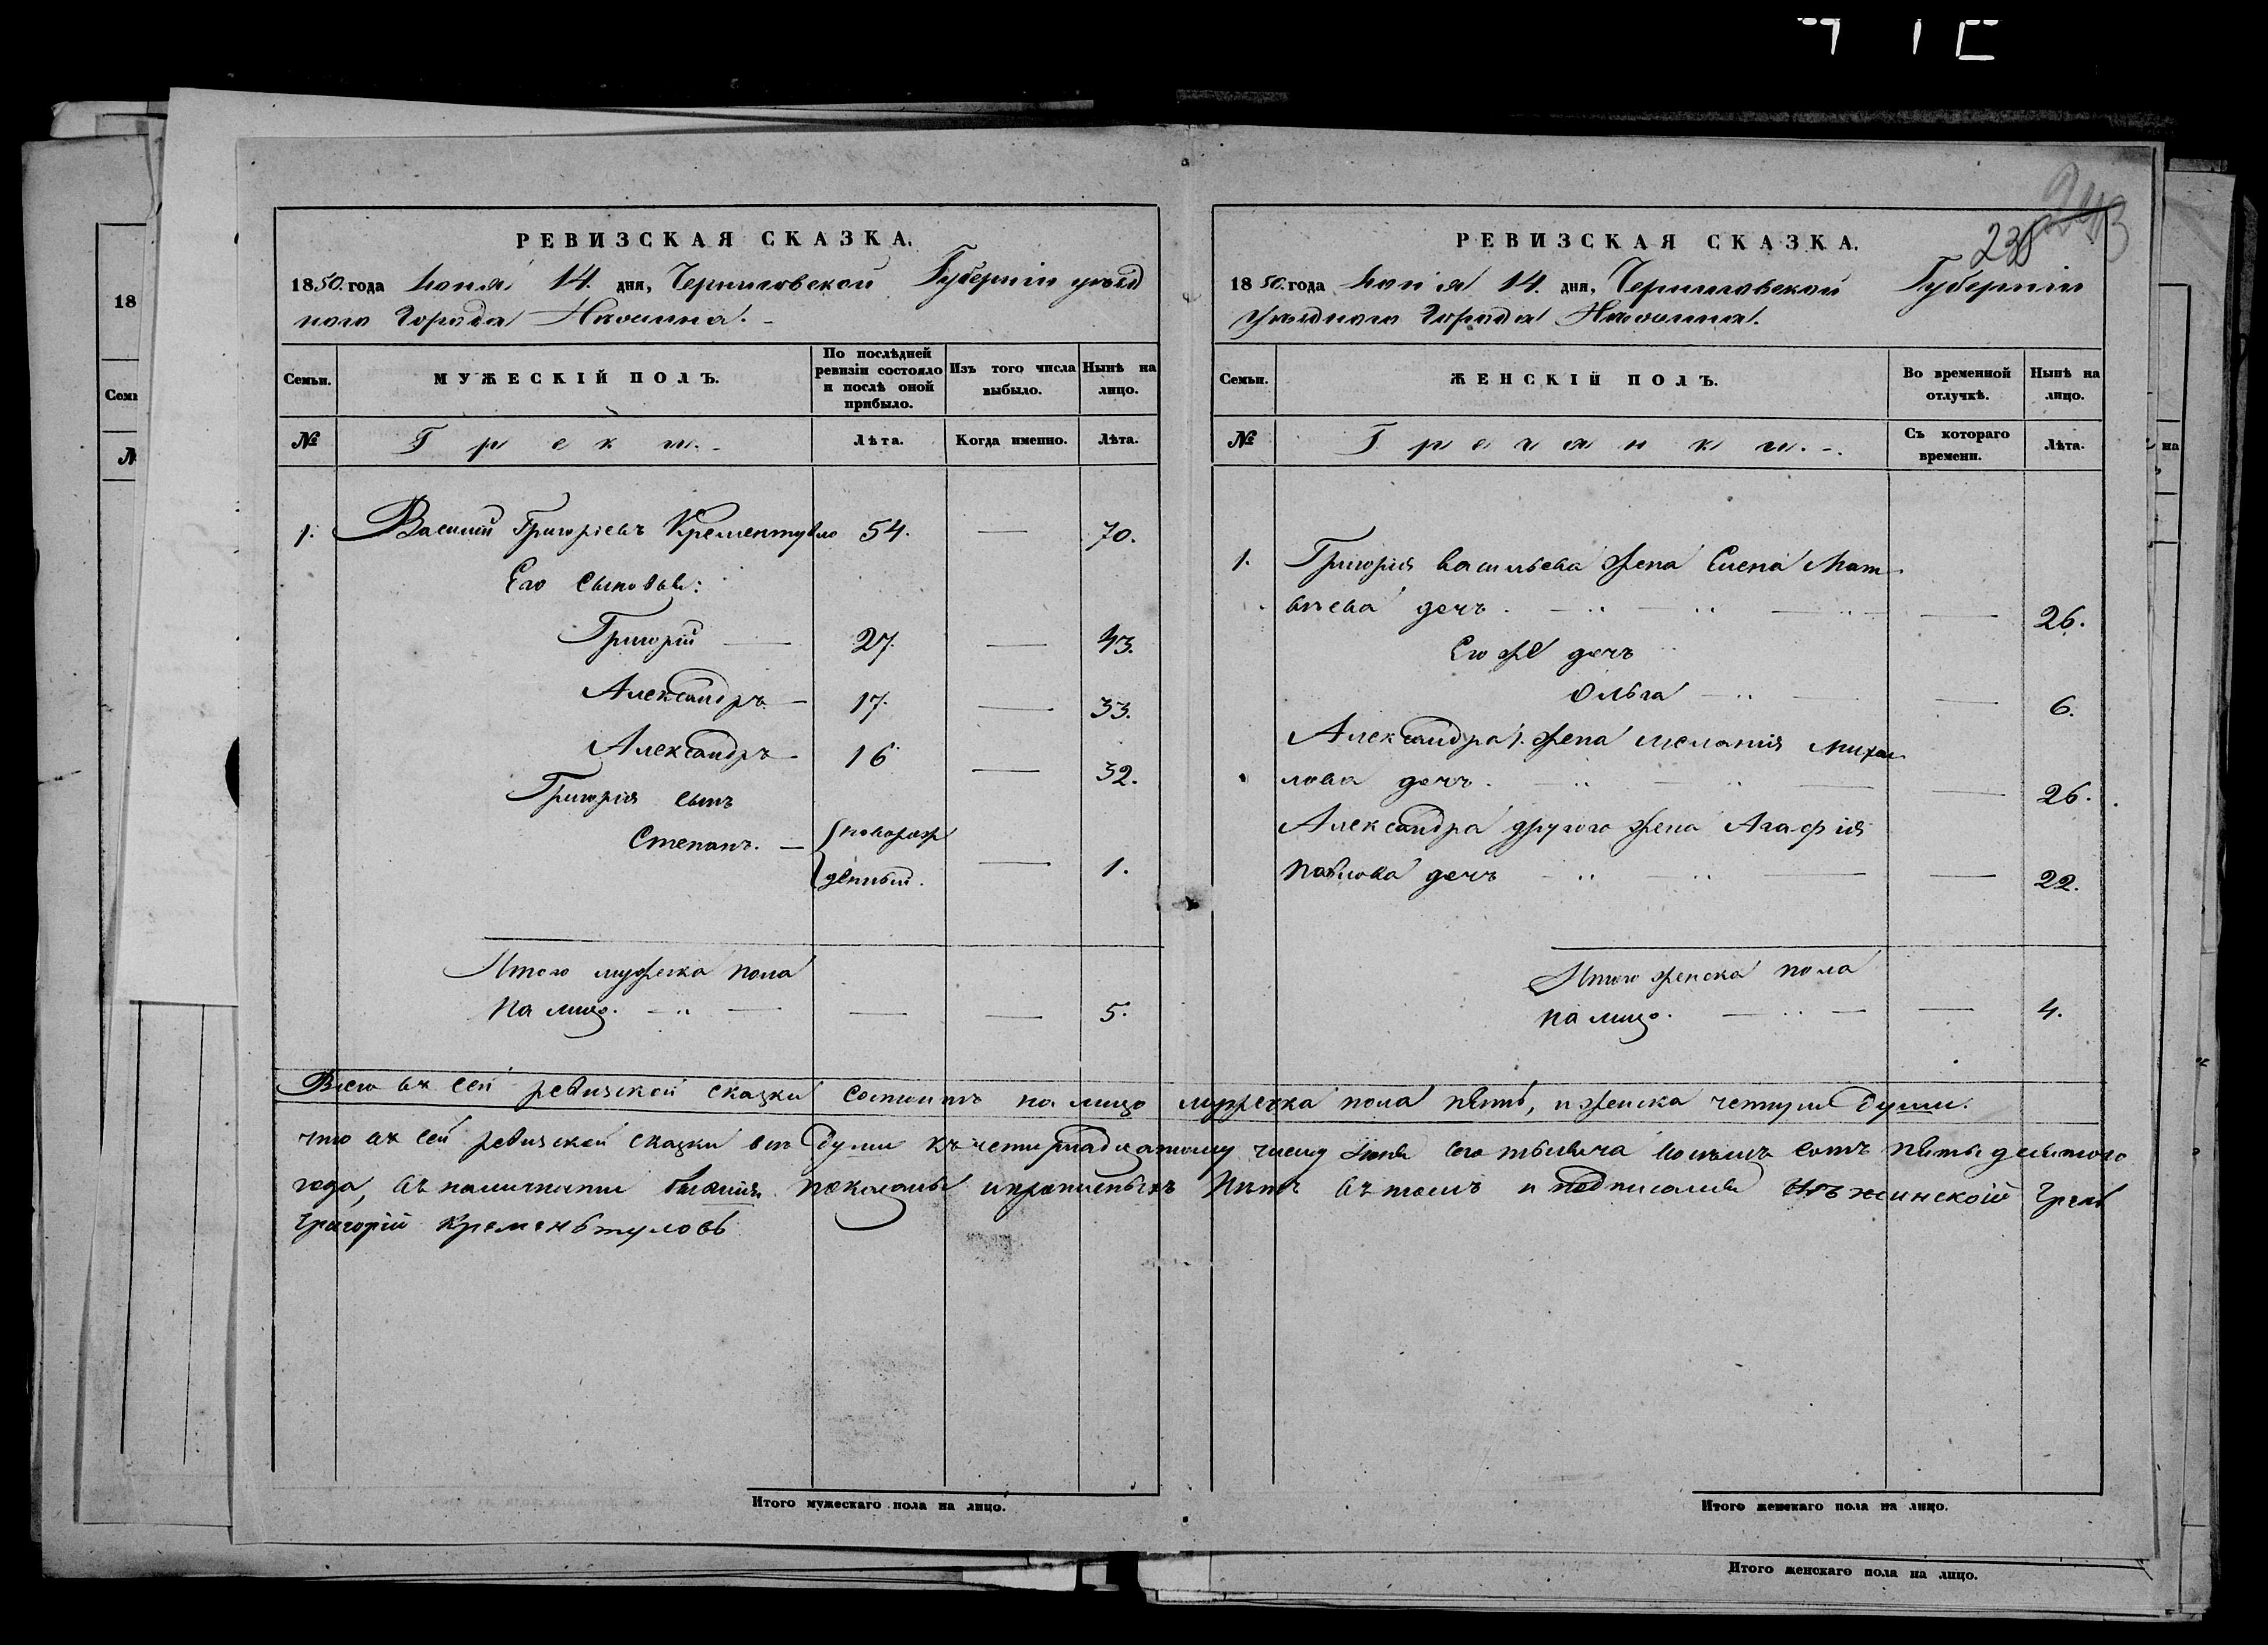 РЕВИЗСКАЯ СКАЗКА.
1850. года Іюня 14. дня, Черниговской Губерніи уѣзд
ного Города Нѣжина.
Семьи.
МУЖЕСКІЙ ПОЛЪ.
По послѣдней ревизіи состояло и послѣ оной прибыло.
Изъ того числа выбыло.
Нынѣ на лицо.
№
Греки.
Лѣта.
Когда именно.
Лѣта.
1. Василий Григоріевъ Крементуло 54. — 70.
Его сыновья:
Григорій — 27. — 43.
Александръ — 17. — 33.
Александръ — 16 — 32.
Григорія сынъ
Степанъ. — новорож
денный. — 1.
Итого мужеска пола
на лицо. — — — 5.
РЕВИЗСКАЯ СКАЗКА.
238
243
1850. года Іюня 14. дня, Черниговской Губерніи
уѣздного Города Нѣжина.
Семьи.
ЖЕНСКІЙ ПОЛЪ.
Во временной отлучкѣ.
Нынѣ на лицо.
№
Гречанки.
Съ котораго времени.
Лѣта.
1. Григорія васильева жена Елена Мат
вѣева дочь. — 26.
Его же дочь
Ольга — 6.
Александра 1. жена меланія михаи
лова дочь. — 26.
Александра другого жена Агафія
павлова дочь — 22.
Итого женска пола
на лицо. — 4.
Всего въ сей ревизской сказки состоитъ на лицо мужеска пола пять, и женска четыри души.
что въ сей ревизской сказки всѣ души къ четырнадцатому числу Іюня сего тысяча восемъ сотъ пятьдесятого
года, въ наличности показаны и прописныхъ нѣтъ въ томъ и подписался Нѣжинскій Грекъ
Григорій Кременьтуловъ
Итого мужескаго пола на лицо.
Итого женскаго пола на лицо.
Итого женскаго пола на лицо.
18
Семь
№
на